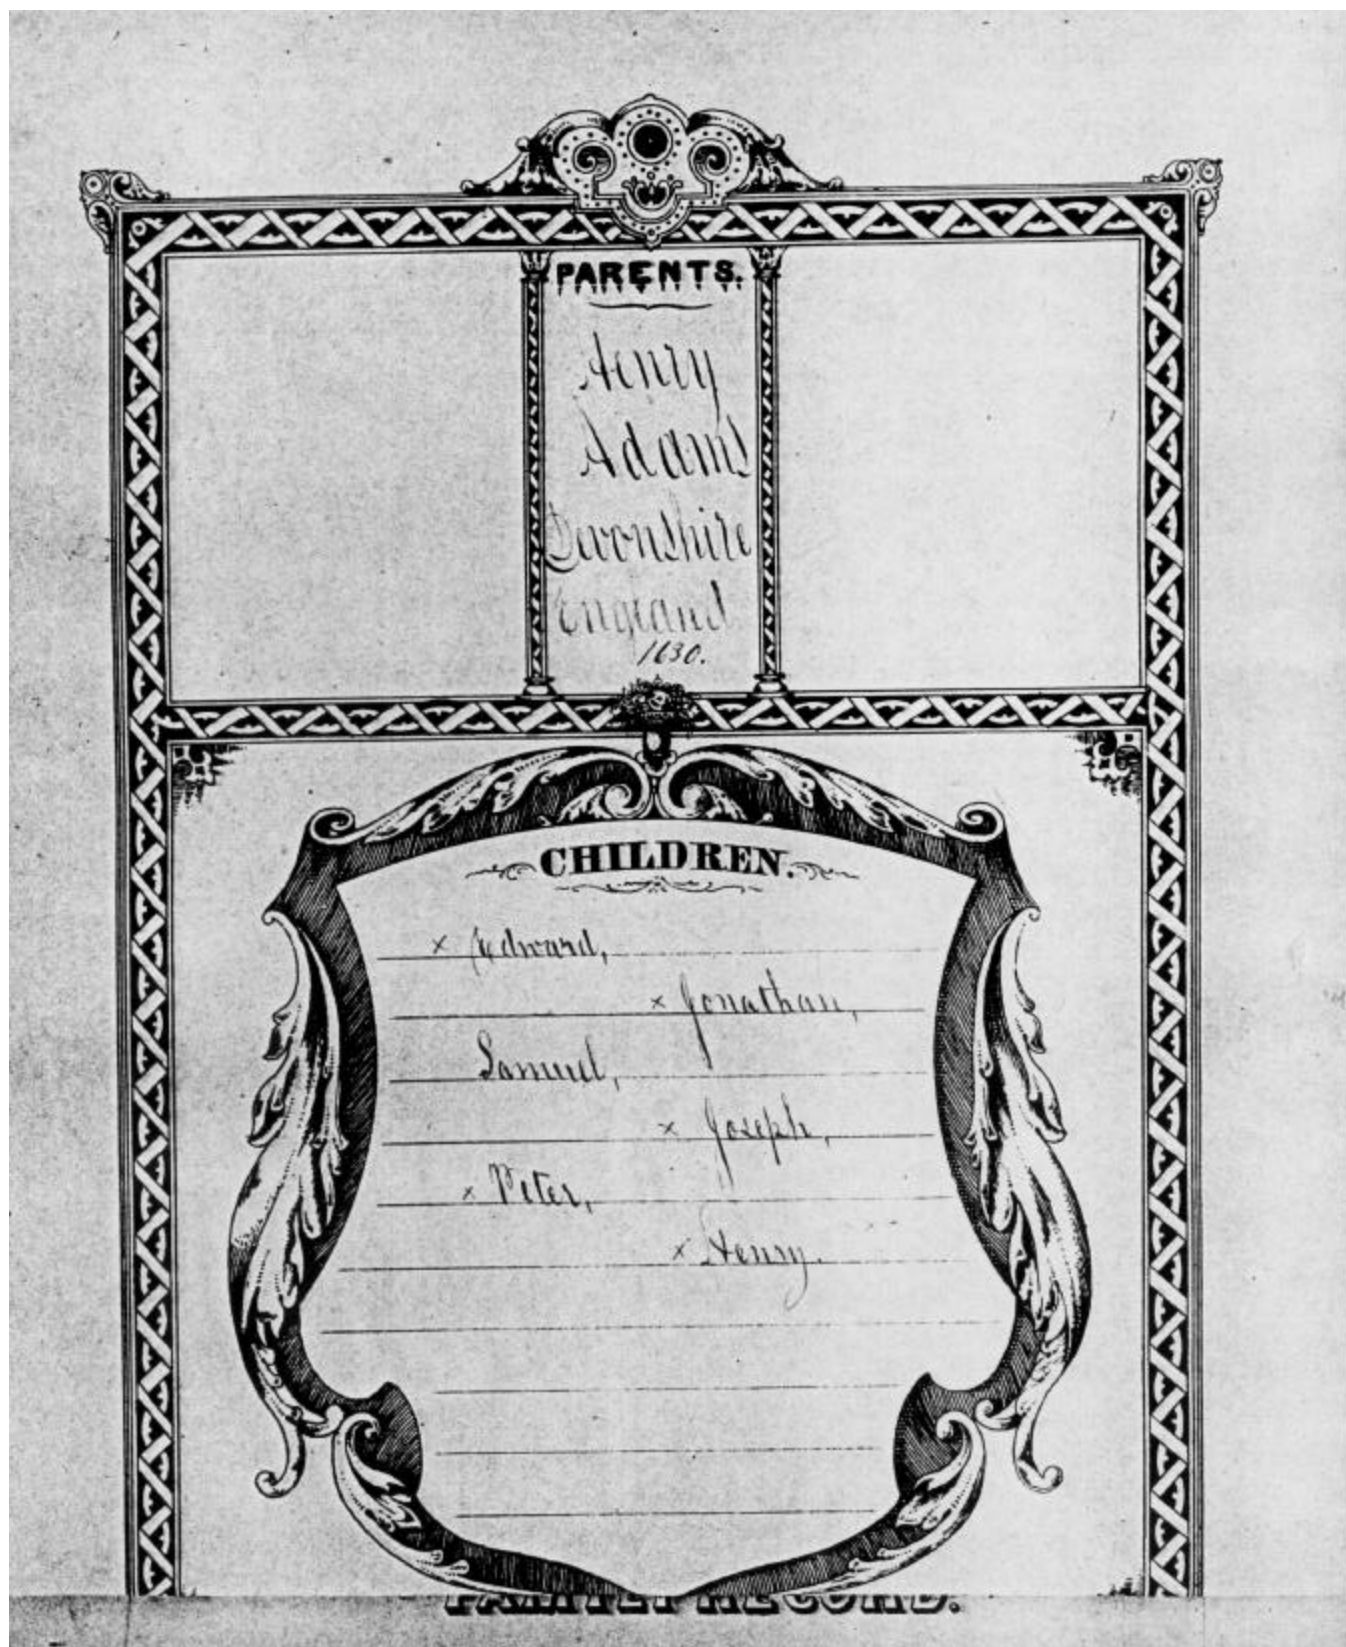 PARENTS.
Henry
Adams
Devonshire
England
1630.
CHILDREN.
x Edward,
x Jonathan,
Samuel,
x Joseph,
x Peter,
x Henry.
FAMILY RECORD.